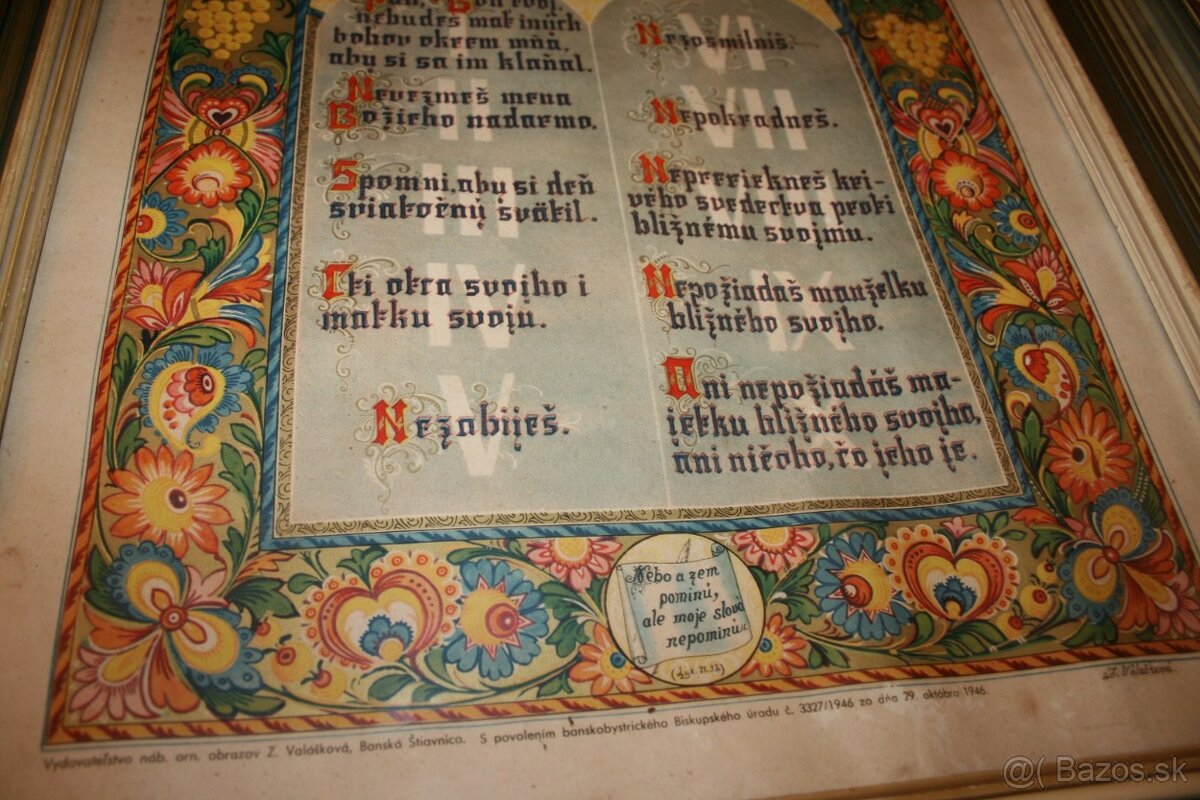 Pán, Boh tvoj,
nebudeš mať iných
bohov okrem mňa,
aby si sa im klaňal.
II
Nevezmeš mena
Božieho nadarmo.
III
Spomni, aby si deň
sviatočný svätil.
IV
Cti otca svojho i
matku svoju.
V
Nezabiješ.
VI
Nezosmilníš.
VII
Nepokradneš.
Nepreriekneš kri-
vého svedectva proti
bližnému svojmu.
IX
Nepožiadaš manželku
bližného svojho.
Ani nepožiadáš ma-
jetku bližného svojho,
ani ničoho, čo jeho je.
Nebo a zem
pominú,
ale moje slová
nepominú"
(Luk. 21.33.)
Z. Valášková.
Vydavateľstvo náb. orn. obrazov Z. Valášková, Banská Štiavnica. S povolením banskobystrického Biskupského úradu č. 3327/1946 zo dňa 29. októbra 1946
@( Bazos.sk